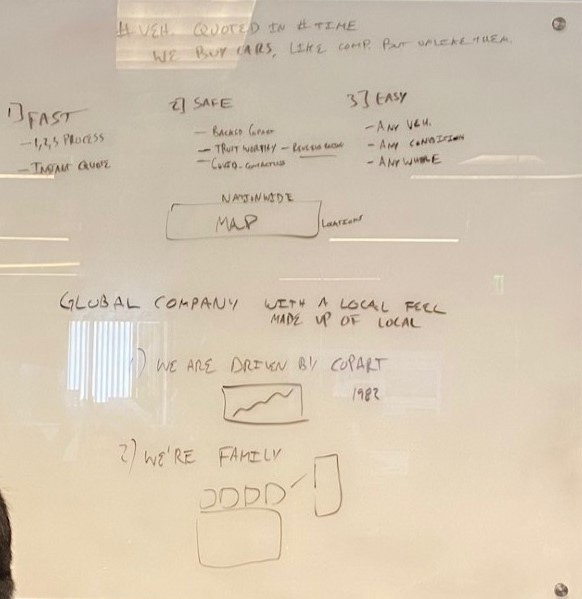 # VEH. QUOTED IN # TIME
WE BUY CARS, LIKE COMP. BUT UNLIKE THEM.
1] FAST
- 1,2,3 PROCESS
- INSTANT QUOTE
2] SAFE
- BACKED COPART
- TRUST WORTHY - REVIEWS
- COVID - CONTACTLESS
3] EASY
- ANY VEH.
- ANY CONDITION
- ANYWHERE
NATIONWIDE
MAP
LOCATIONS
GLOBAL COMPANY WITH A LOCAL FEEL
MADE UP OF LOCAL
1) WE ARE DRIVEN BY COPART
1982
2) WE'RE FAMILY